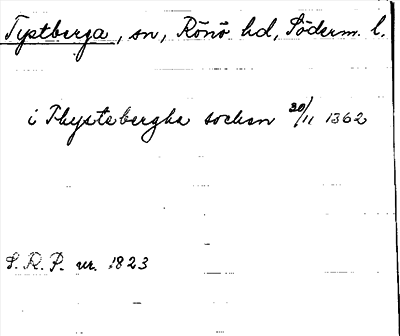 Tystberga, sn, Rönö hd, Söderm. l.
i Thystebergha sochen 30/11 1362
S. R. P. nr. 1823